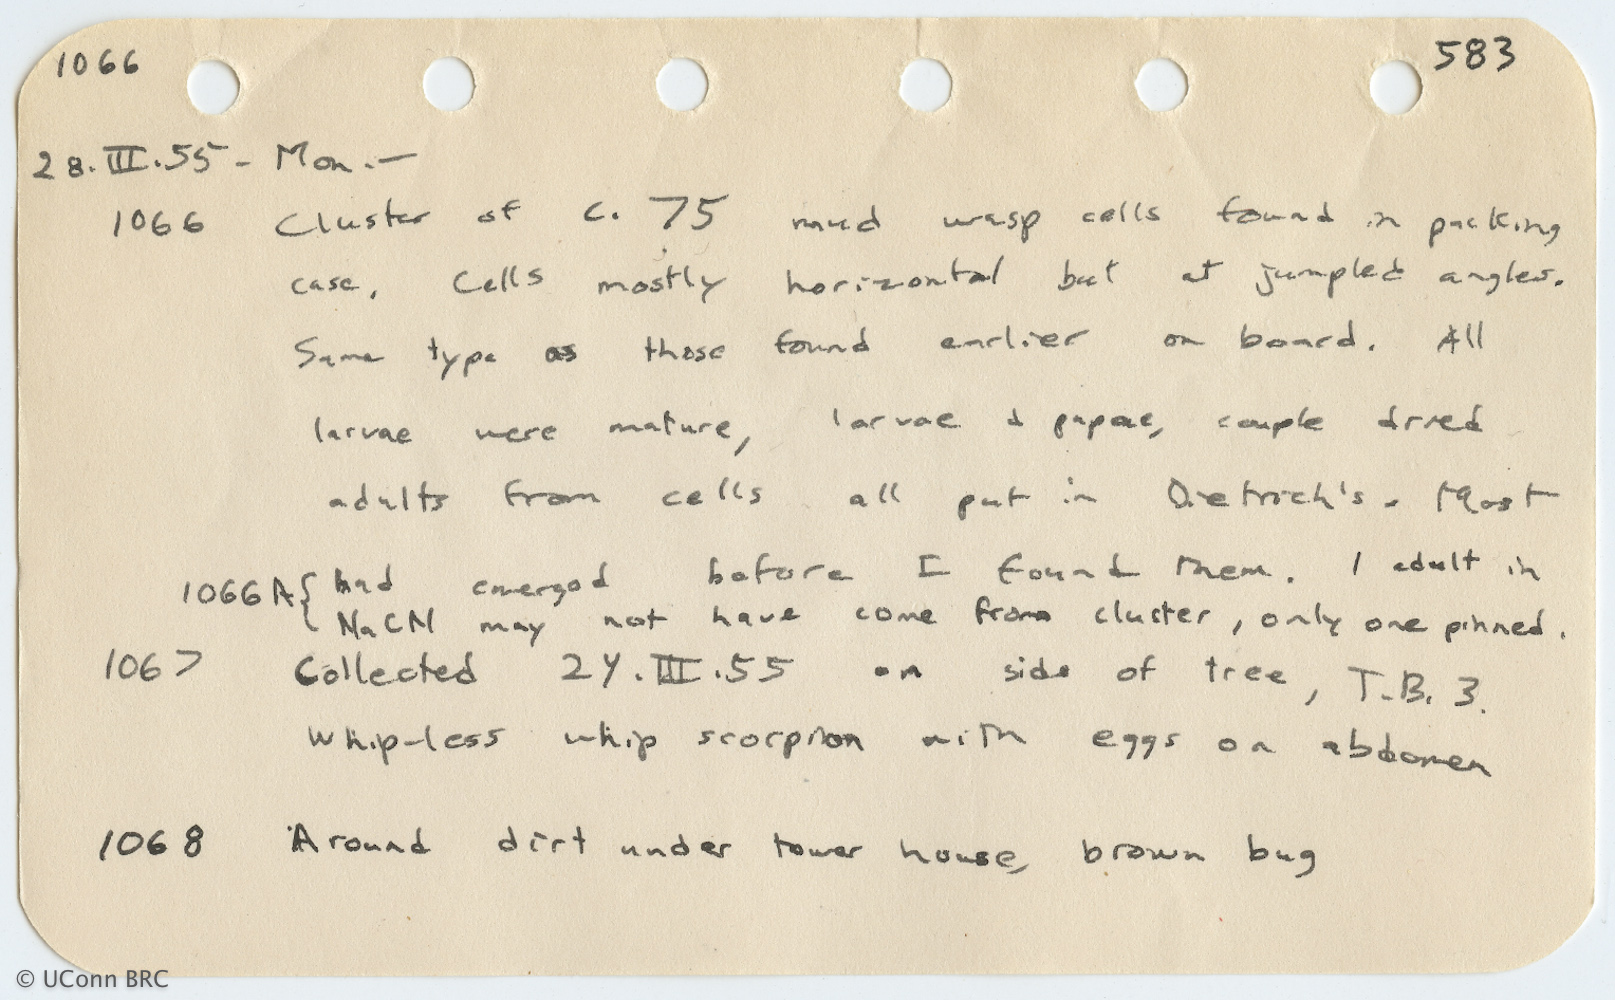 1066 583
28.III.55 - Mon.—
1066 Cluster of c. 75 mud wasp cells found in packing
case, Cells mostly horizontal but at jumpled angles.
Same type as those found earlier on board. All
larvae were mature, larvae & pupae, couple dried
adults from cells all put in Dietrich's. Most
1066A { had emerged before I found them. 1 adult in
NaCN may not have come from cluster, only one pinned.
1067 Collected 24.III.55 on side of tree, T.B. 3.
Whip-less whip scorpion with eggs on abdomen
1068 Around dirt under tower house, brown bug
© UConn BRC